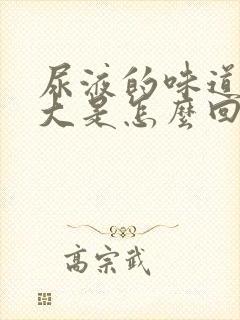 尿液的味道
大是怎麼回
高宗武